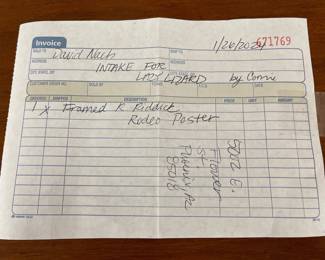 Invoice
671769
1/26/2024
SOLD TO David
SHIP TO
ADDRESS INTAKE FOR
ADDRESS
LAZY LIZARD by Connie
CUSTOMER ORDER NO. SOLD BY TERMS F.O.B. DATE
ORDERED SHIPPED DESCRIPTION PRICE UNIT AMOUNT
X Framed R Riddick
Rodeo Poster
5002 E.
Flower
St.
Phoenix, Az
85018